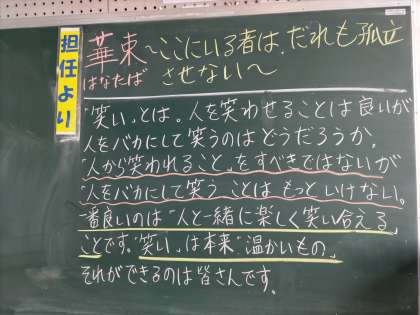 担任より
華束 ～ここにいる者は、だれも孤立
はなたば させない～
"笑い"とは。人を笑わせることは良いが
人をバカにして笑うのはどうだろうか。
"人から笑われること"をすべきではないが
"人をバカにして笑う"ことはもっといけない。
一番良いのは"人と一緒に楽しく笑い合える"
ことです。"笑い"は本来"温かいもの"。
それができるのは皆さんです。